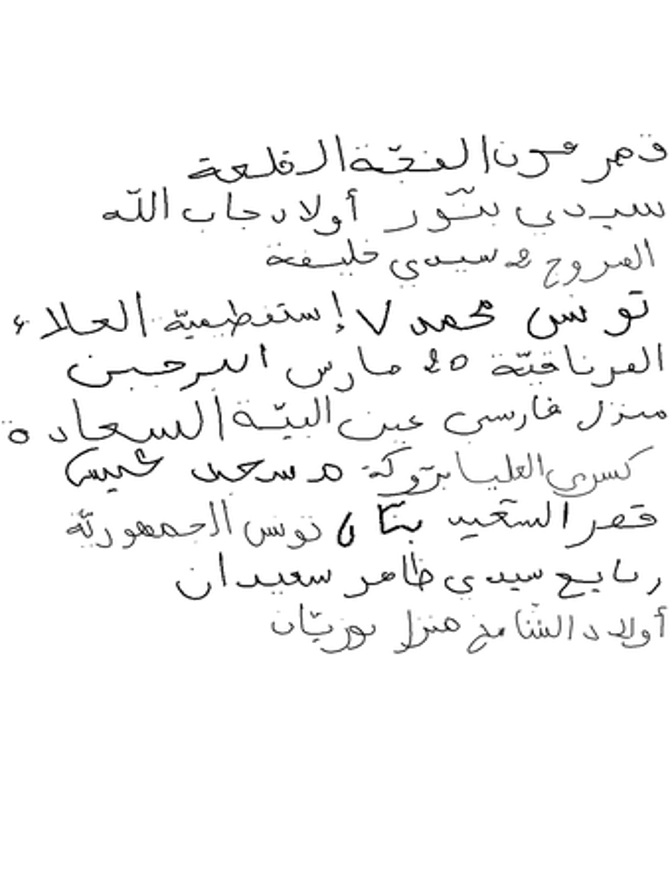 قمرعون الفجّة القلعة
سيدي بنّور أولاد جاب الله
المروج 2 سيدي خليفة
تونس محمد V إستفطيميّة العلاء
المرناقيّة 20 مارس البرجين
منزل فارسي عين البيّة السعادة
كسرى العليا بزّوكة م سعد
قصر السعيد بتّان تونس الجمهوريّة
ربايع سيدي ظاهر سعيدان
أولاد الشامخ منزل بوزيّان